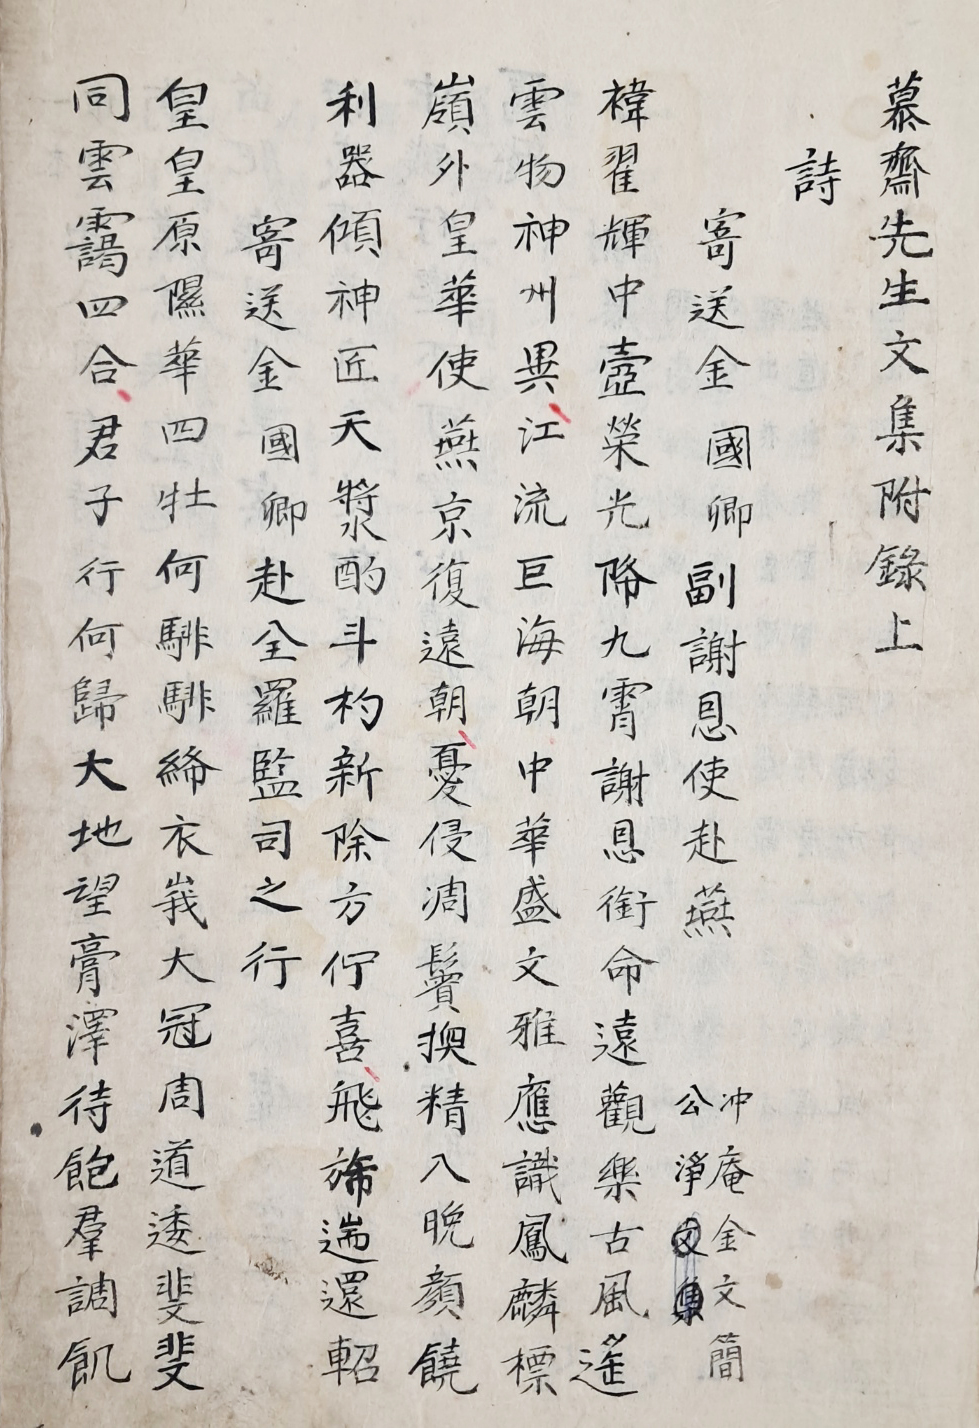 慕齋先生文集附錄上
詩
寄送金國卿副謝恩使赴燕
冲庵金文簡
公淨文集
褘翟輝中壼榮光降九霄謝恩銜命遠觀樂古風遙
雲物神州異江流巨海朝中華盛文雅應識鳳麟標
嶺外皇華使燕京復遠朝憂侵凋鬢換精入晩顔饒
利器傾神匠天漿酌斗杓新除方佇喜飛旆遄還軺
寄送金國卿赴全羅監司之行
皇皇原隰華四牡何騑騑絺衣峩大冠周道逶斐斐
同雲靄四合君子行何歸大地望膏澤待飽羣調飢